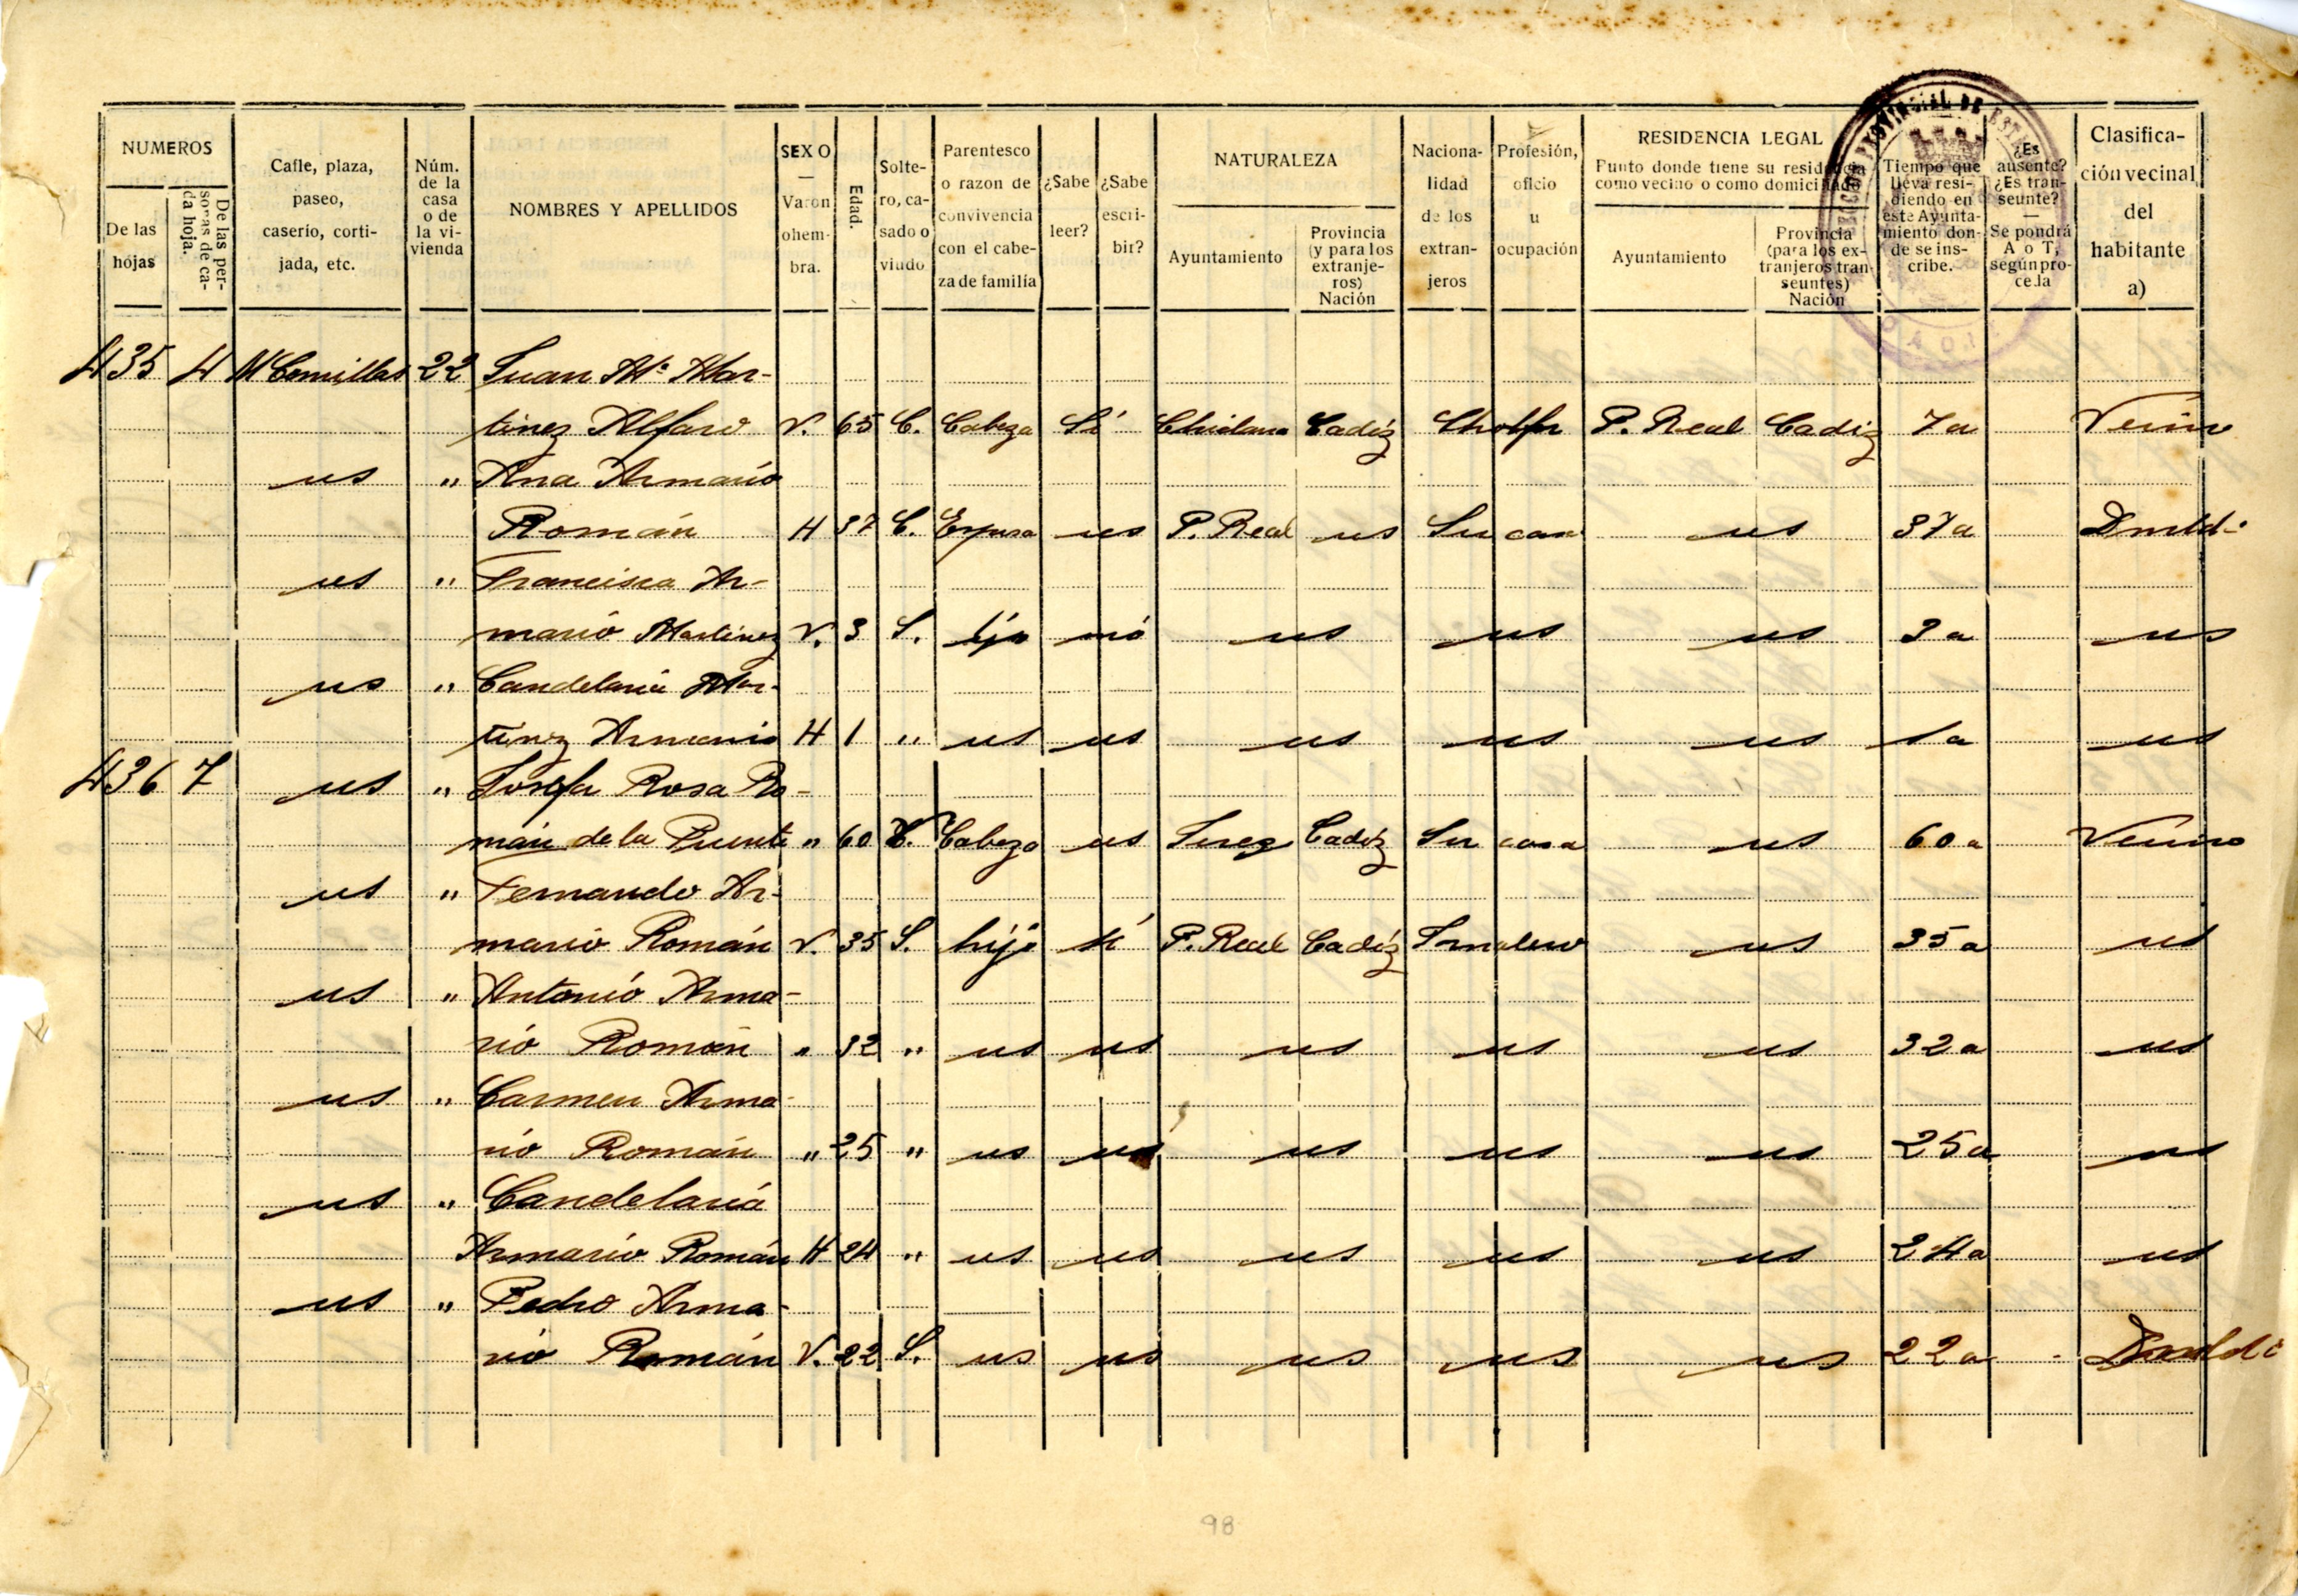 NUMEROS
De las hojas
De las personas de cada hoja.
Calle, plaza, paseo, caserío, cortijada, etc.
Núm. de la casa o de la vivienda
NOMBRES Y APELLIDOS
SEXO — Varon ohembra.
Edad.
Soltero, casado o viudo
Parentesco o razon de convivencia con el cabeza de familia
¿Sabe leer?
¿Sabe escribir?
NATURALEZA
Ayuntamiento
Provincia (y para los extranjeros) Nación
Nacionalidad de los extranjeros
Profesión, oficio u ocupación
RESIDENCIA LEGAL
Punto donde tiene su residencia como vecino o como domiciliado
Ayuntamiento
Provincia (para los extranjeros transeuntes) Nación
Tiempo que lleva residiendo en este Ayuntamiento donde se inscribe.
¿Es ausente? ¿Es transeunte? — Se pondrá A o T, según proceda
Clasificación vecinal del habitante a)
435 4 M Comillas 22 Juan Mª Mar-
tinez Alfaro V. 65 C. Cabeza Sí Chiclana Cadiz Chofer P. Real Cadiz 7a Vecino
us " Ana Armario
Román H 37 C. Esposa us P. Real us Su casa us 37a Domldo
us " Francisca Ar-
mario Martinez V. 3 S. hijo nó us us us 3a us
us " Candelaria Mar-
tinez Armario H 1 " us us us us us 1a us
436 7 us " Josefa Rosa Ro-
mán de la Puente " 60 Cabeza us Jerez Cadiz Su casa us 60a Vecino
us " Fernando Ar-
mario Román V. 35 S. hijo sí P. Real Cadiz Jornalero us 35a us
us " Antonio Arma-
rio Román " 32 " us us us us us 32a us
us " Carmen Arma-
rio Román " 25 " us us us us us 25a us
us " Candelaria
Armario Román H 24 " us us us us us 24a us
us " Pedro Arma-
rio Román V. 22 S. us us us us us 22a Domldo
98